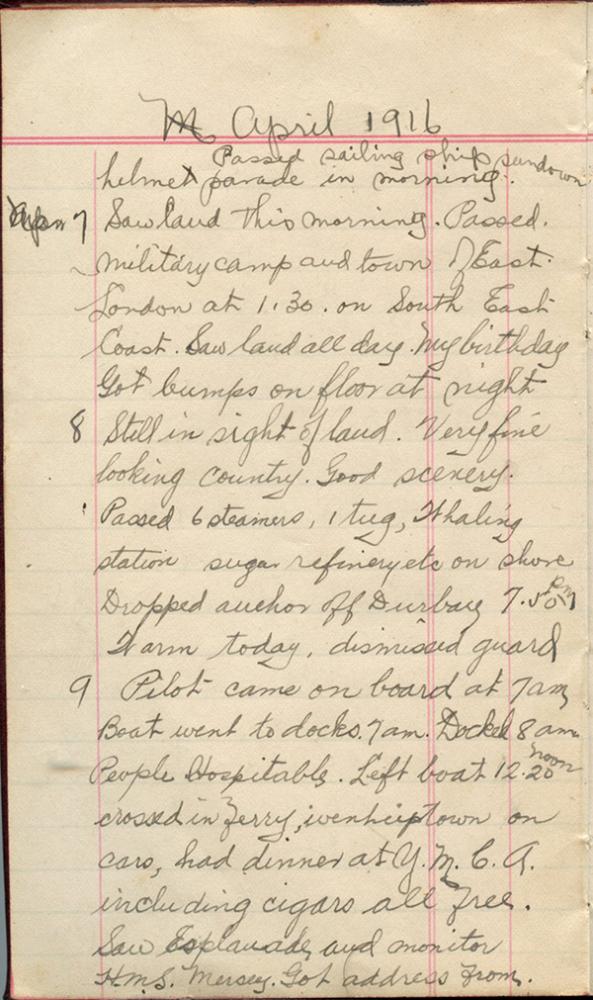 April 1916
Passed sailing ship sundown
helmet parade in morning.
7 Saw land this morning. Passed.
military camp and town of East.
London at 1.30. on South East
Coast. Saw land all day. My birthday
Got bumps on floor at night
8 Still in sight of land. Very fine
looking country. Good scenery.
Passed 6 steamers, 1 tug, Whaling
station sugar refinery etc on shore
Dropped anchor off Durban 7.50 pm
Warm today. dismissed guard
9 Pilot came on board at 7am
Boat went to docks. 7am. Docked 8 am
People Hospitable. Left boat 12.20 noon
crossed in Ferry, went up town on
cars, had dinner at Y.M.C.A.
including cigars all free.
Saw Esplanade, and monitor
H.M.S. Mersey. Got address from.